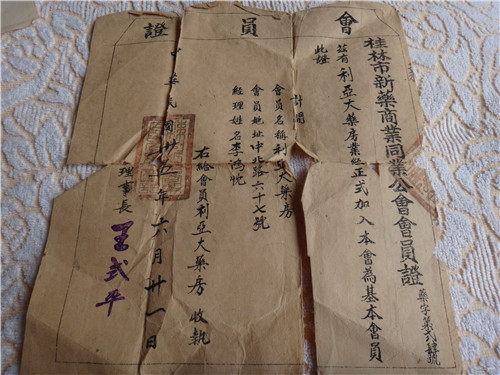 會員證
桂林市新藥商業同業公會會員證
藥字第 號
茲有利亞大藥房業經正式加入本會為基本會員
此證
計開
會員名稱利亞大藥房
會員地址中北路六十七號
經理姓名李鴻
右給會員利亞大藥房 收執
理事長
中華民國卅五年六月廿一日